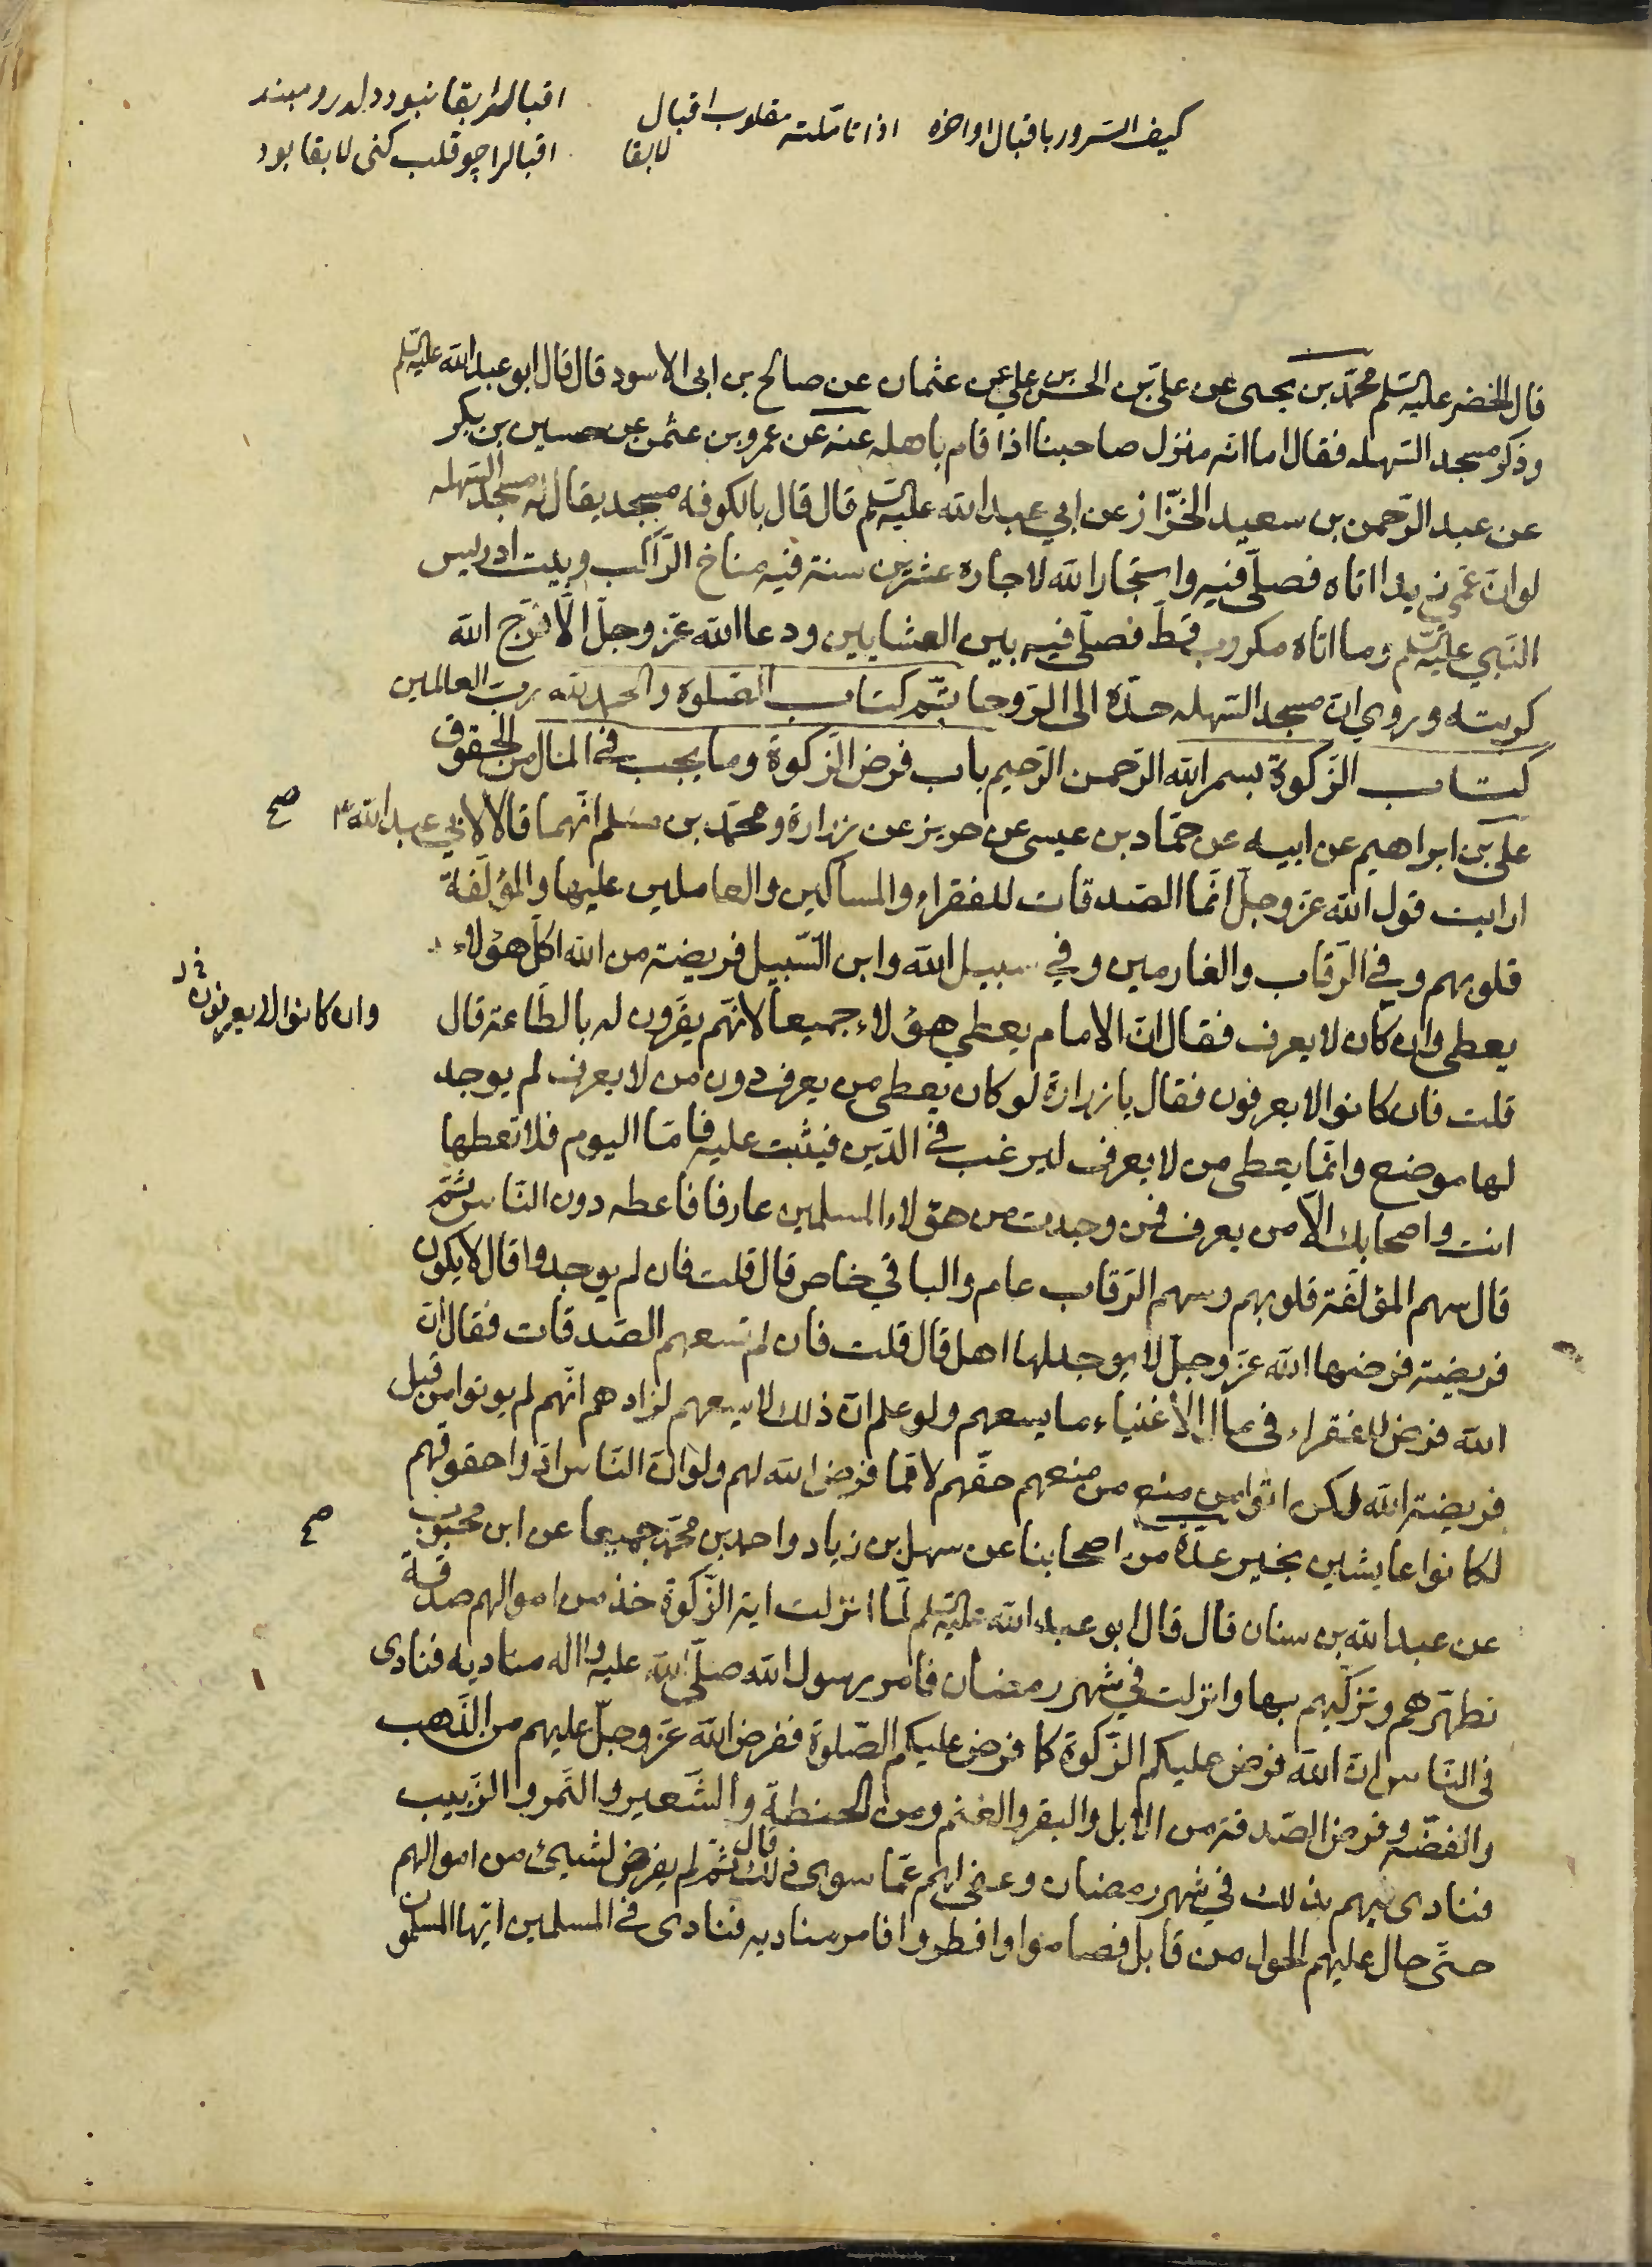 كيف السرور باقبال اواخره اذا تاملته مقلوب اقبال
لا بقا
اقبال را بقا نبود دل درو مبند
اقبال را چو قلب كنى لا بقا بود
قال الخضر عليه السلم محمد بن يحيى عن على بن الحسن بن علي عن عثمان عن صالح بن ابى الاسود قال قال ابو عبد الله عليه السلم
وذكر مسجد السهله فقال اما انه منزل صاحبنا اذا قام باهله عنه عن عمرو بن عثمن عن حسين بن بكر
عن عبد الرحمن بن سعيد الخزاز عن ابي عبد الله عليه السلم قال قال بالكوفه مسجد يقال له مسجد السهله
لو ان عمى زيدا اتاه فصلى فيه واستجار الله لاجاره عشرين سنة فيه مناخ الراكب وبيت ادريس
النبي عليه السلم وما اتاه مكروب قط فصلى فيه بين العشايين ودعا الله عز وجل الا فرج الله
كربته وروي ان مسجد السهله حده الى الروحا تم كتاب الصلوة والحمد لله رب العالمين
كتاب الزكوة بسم الله الرحمن الرحيم باب فرض الزكوة وما يجب في المال من الحقوق
على بن ابراهيم عن ابيه عن حماد بن عيسى عن حريز عن زرارة ومحمد بن مسلم انهما قالا لابي عبد الله ع
صح
ارايت قول الله عز وجل انما الصدقات للفقراء والمساكين والعاملين عليها والمؤلفة
قلوبهم وفي الرقاب والغارمين وفي سبيل الله وابن السبيل فريضة من الله اكل هؤلاء
يعطى وان كان لا يعرف فقال ان الامام يعطي هؤلاء جميعا لانهم يقرون له بالطاعة قال
وان كانوا لا يعرفون
قلت فان كانوا لا يعرفون فقال يا زرارة لو كان يعطى من يعرف دون من لا يعرف لم يوجد
لها موضع وانما يعطى من لا يعرف ليرغب في الدين فيثبت عليه فاما اليوم فلا تعطها
انت واصحابك الا من يعرف فمن وجدت من هؤلاء المسلمين عارفا فاعطه دون الناس ثم
قال سهم المؤلفة قلوبهم وسهم الرقاب عام والباقي خاص قال قلت فان لم يوجدوا قال لا يكون
فريضة فرضها الله عز وجل لا يوجد لها اهل قال قلت فان لم تسعهم الصدقات فقال ان
الله فرض للفقراء في مال الاغنياء ما يسعهم ولو علم ان ذلك لا يسعهم لزادهم انهم لم يوتوا من قبل
فريضة الله لكن اتوا من منع من منعهم حقهم لا مما فرض الله لهم ولو ان الناس ادوا حقوقهم
لكانوا عايشين بخير عدة من اصحابنا عن سهل بن زياد واحمد بن محمد جميعا عن ابن محبوب
صح
عن عبد الله بن سنان قال قال ابو عبد الله عليه السلم لما انزلت اية الزكوة خذ من اموالهم صدقة
تطهرهم وتزكيهم بها وانزلت في شهر رمضان فامر رسول الله صلى الله عليه واله مناديه فنادى
فى الناس ان الله فرض عليكم الزكوة كما فرض عليكم الصلوة ففرض الله عز وجل عليهم من الذهب
والفضة وفرض الصدقة من الابل والبقر والغنم ومن الحنطة والشعير والتمر والزبيب
فنادى بهم بذلك في شهر رمضان وعفى لهم عما سوى ذلك قال ثم لم يفرض لشيئ من اموالهم
حتى حال عليهم الحول من قابل فصاموا وافطروا فامر مناديه فنادى في المسلمين ايها المسلمون